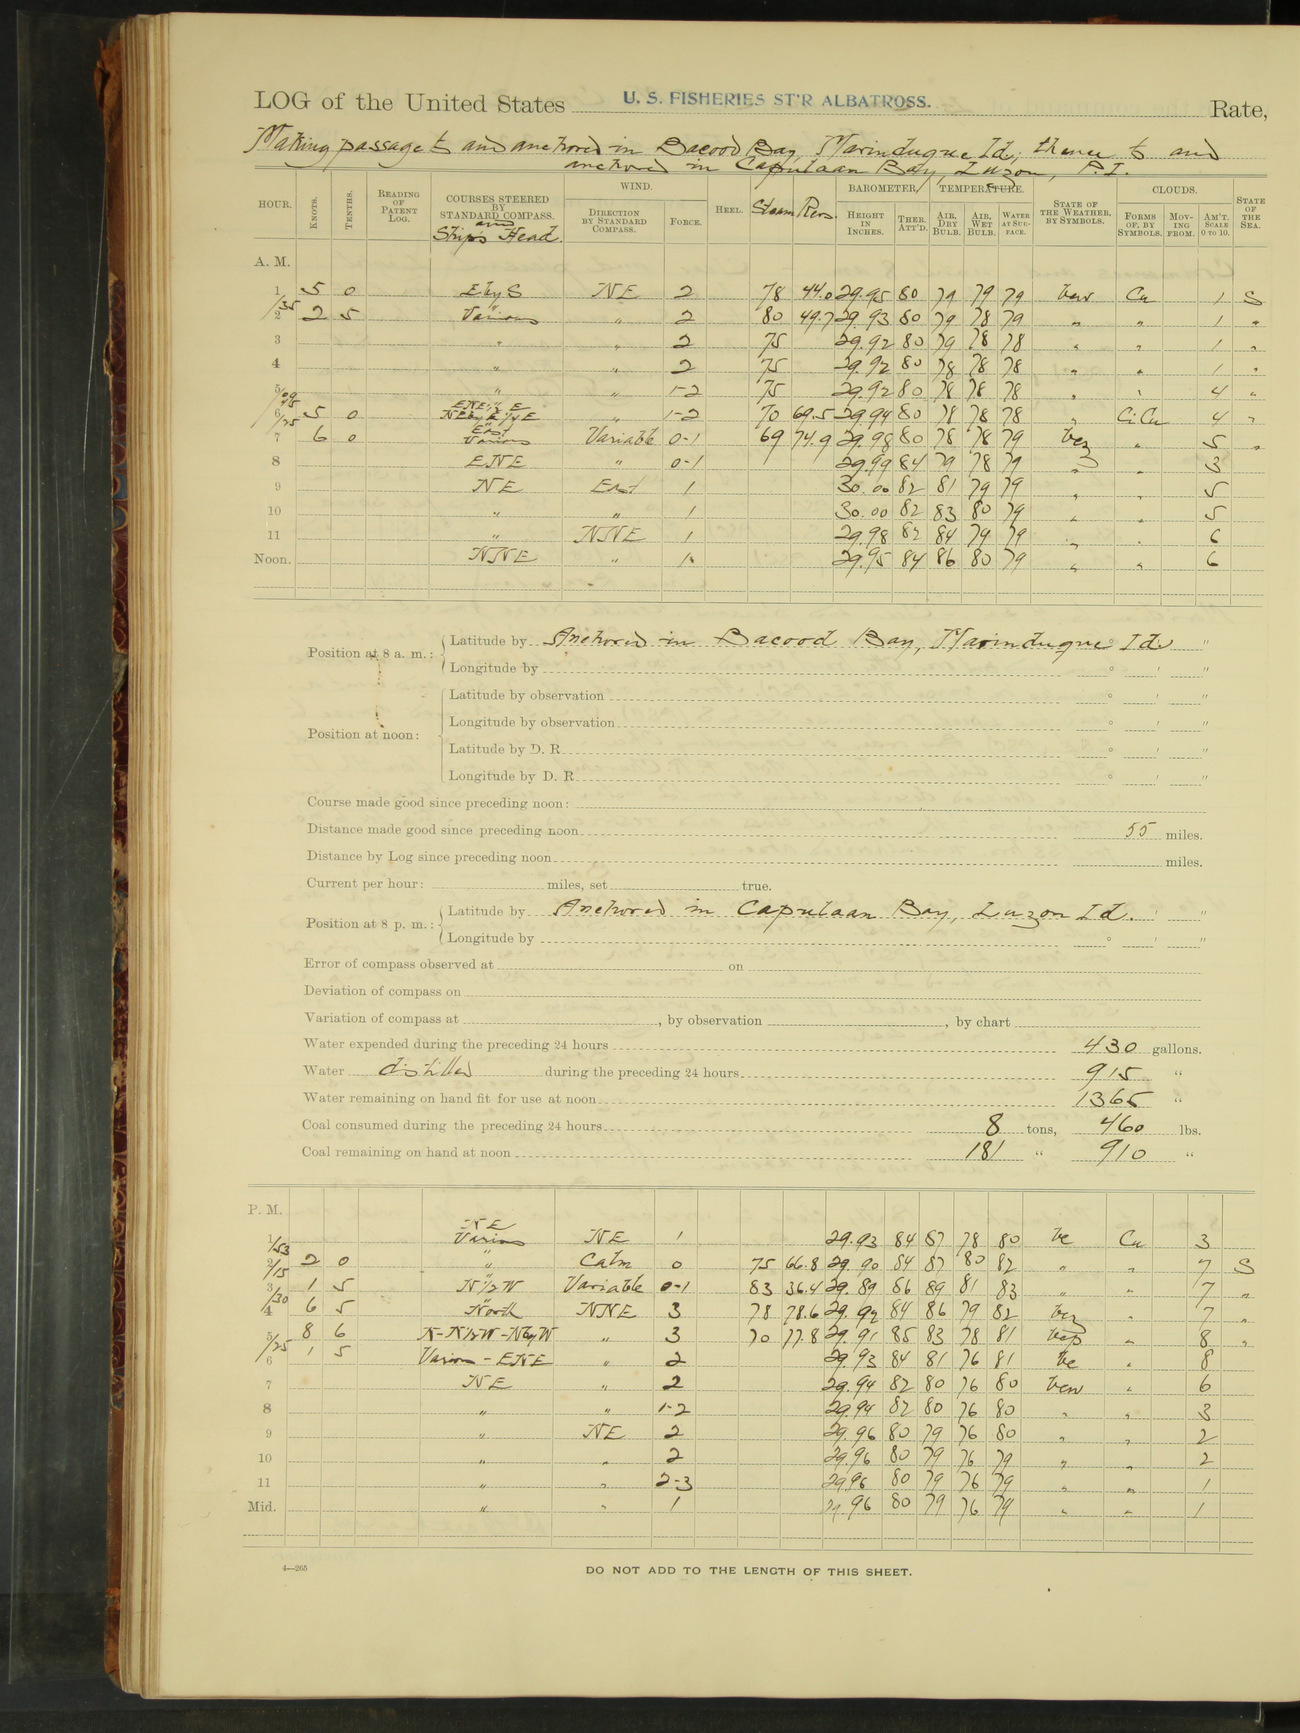 LOG of the United States U. S. FISHERIES ST'R ALBATROSS. Rate,
Making passage to and anchored in Bacood Bay, Marinduque Id, thence to and
anchored in Capulaan Bay, Luzon, P. I.
HOUR. KNOTS. TENTHS. READING OF PATENT LOG. COURSES STEERED BY STANDARD COMPASS. and Ship's Head. WIND. DIRECTION BY STANDARD COMPASS. FORCE. HEEL. Steam Revs. BAROMETER. HEIGHT IN INCHES. THER. ATT'D. TEMPERATURE. AIR, DRY BULB. AIR, WET BULB. WATER AT SURFACE. STATE OF THE WEATHER, BY SYMBOLS. CLOUDS. FORMS OF, BY SYMBOLS. MOVING FROM. AM'T. SCALE 0 TO 10. STATE OF THE SEA.
A. M.
1 5 0 E by S NE 2 78 44.0 29.95 80 79 79 79 Cu 1 S
/35
2 2 5 Various " 2 80 49.7 29.93 80 79 78 79 " " 1 "
3 " " 2 75 29.92 80 79 78 78 " " 1 "
4 " " 2 75 29.92 80 78 78 78 " " 1 "
5 " " 1-2 75 29.92 80 78 78 78 " 4 "
6 5 0 " 1-2 70 69.5 29.94 80 78 78 78 " Ci Cu 4 "
/25 East
7 6 0 Various Variable 0-1 69 74.9 29.98 80 78 78 79 bcz " 5 "
8 ENE " 0-1 29.99 84 79 78 79 " " 3
9 NE East 1 30.00 82 81 79 79 " " 5
10 " " 1 30.00 82 83 80 79 " " 5
11 " NNE 1 29.98 82 84 79 79 " " 6
Noon. NNE " 1 29.95 84 86 80 79 " " 6
Position at 8 a. m.: Latitude by Anchored in Bacood Bay, Marinduque Id. "
Longitude by ° ' "
Position at noon: Latitude by observation ° ' "
Longitude by observation ° ' "
Latitude by D. R. ° ' "
Longitude by D. R. ° ' "
Course made good since preceding noon:
Distance made good since preceding noon 55 miles.
Distance by Log since preceding noon miles.
Current per hour: miles, set true.
Position at 8 p. m.: Latitude by Anchored in Capulaan Bay, Luzon Id. ' "
Longitude by ° ' "
Error of compass observed at on
Deviation of compass on
Variation of compass at , by observation , by chart
Water expended during the preceding 24 hours 430 gallons.
Water distilled during the preceding 24 hours 915 "
Water remaining on hand fit for use at noon 1365 "
Coal consumed during the preceding 24 hours 8 tons, 460 lbs.
Coal remaining on hand at noon 181 " 910 "
P. M.
NE
1 Various NE 1 29.93 84 87 78 80 bc Cu 3
/53
2 2 0 " Calm 0 75 66.8 29.90 84 87 80 82 " " 7 S
/15
3 1 5 N½W Variable 0-1 83 36.4 29.89 86 89 81 83 " " 7 "
/30
4 6 5 North NNE 3 78 78.6 29.92 84 86 79 82 bcz " 7 "
5 8 6 N-N½W-NbyW " 3 70 77.8 29.91 85 83 78 81 bcp " 8 "
/25
6 1 5 Various - ENE " 2 29.93 84 81 76 81 bc " 8
7 NE " 2 29.94 82 80 76 80 " 6
8 " " 1-2 29.94 82 80 76 80 " " 3
9 " NE 2 29.96 80 79 76 80 " " 2
10 " " 2 29.96 80 79 76 79 " " 2
11 " " 2-3 29.96 80 79 76 79 " " 1
Mid. " " 1 29.96 80 79 76 79 " " 1
4—265
DO NOT ADD TO THE LENGTH OF THIS SHEET.